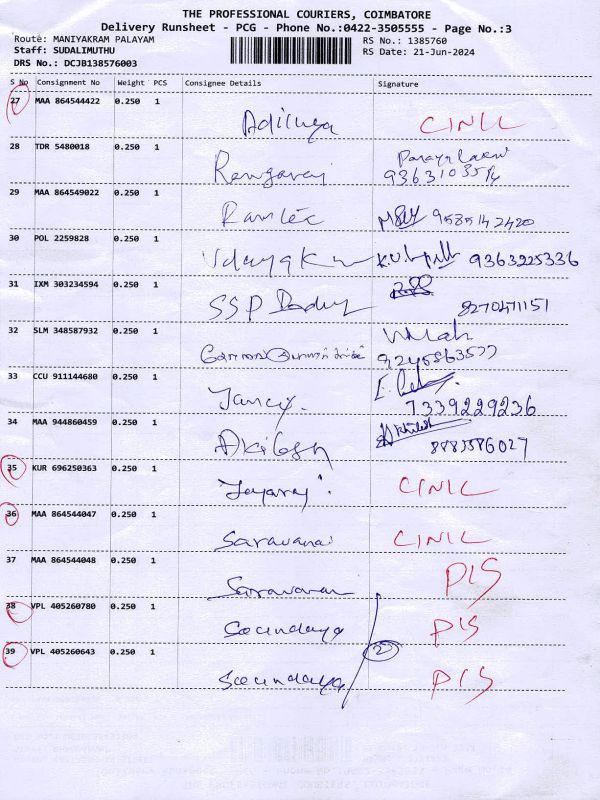 THE PROFESSIONAL COURIERS, COIMBATORE
Delivery Runsheet - PCG - Phone No.:0422-3505555 - Page No.:3
Route: MANIYAKRAM PALAYAM RS No.: 1385760
Staff: SUDALIMUTHU RS Date: 21-Jun-2024
DRS No.: DCJB138576003
S No Consignment No Weight PCS Consignee Details Signature
27 MAA 864544422 0.250 1
CINIL
28 TDR 5480018 0.250 1
Rengaraj
29 MAA 864549022 0.250 1
9585142420
30 POL 2259828 0.250 1
9363225336
31 IXM 303234594 0.250 1
SSP
8270471151
32 SLM 348587932 0.250 1
33 CCU 911144680 0.250 1
7339229236
34 MAA 944860459 0.250 1
Akilesh
35 KUR 696250363 0.250 1
Jeyaraj CINIL
36 MAA 864544047 0.250 1
Saravanan CINIL
37 MAA 864544048 0.250 1
Saravanan PIS
38 VPL 405260780 0.250 1
Soundaya PIS
39 VPL 405260643 0.250 1
2
Soundaya PIS